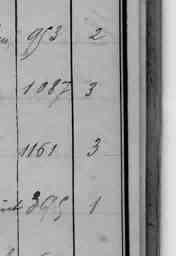 953 2
1087 3
1161 3
395 1